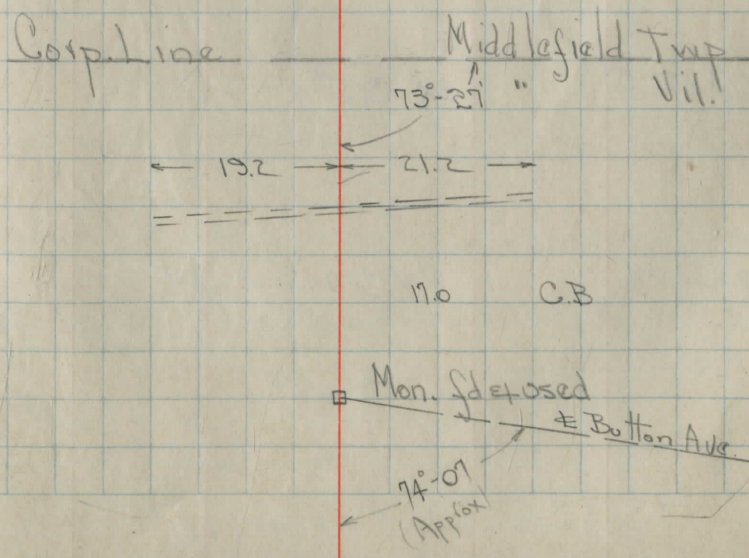 Corp. Line Middlefield Twp
" Vil.
73°-27'
19.2 21.2
17.0 C.B
Mon. fd & used
℄ Button Ave.
74°-07
(Approx